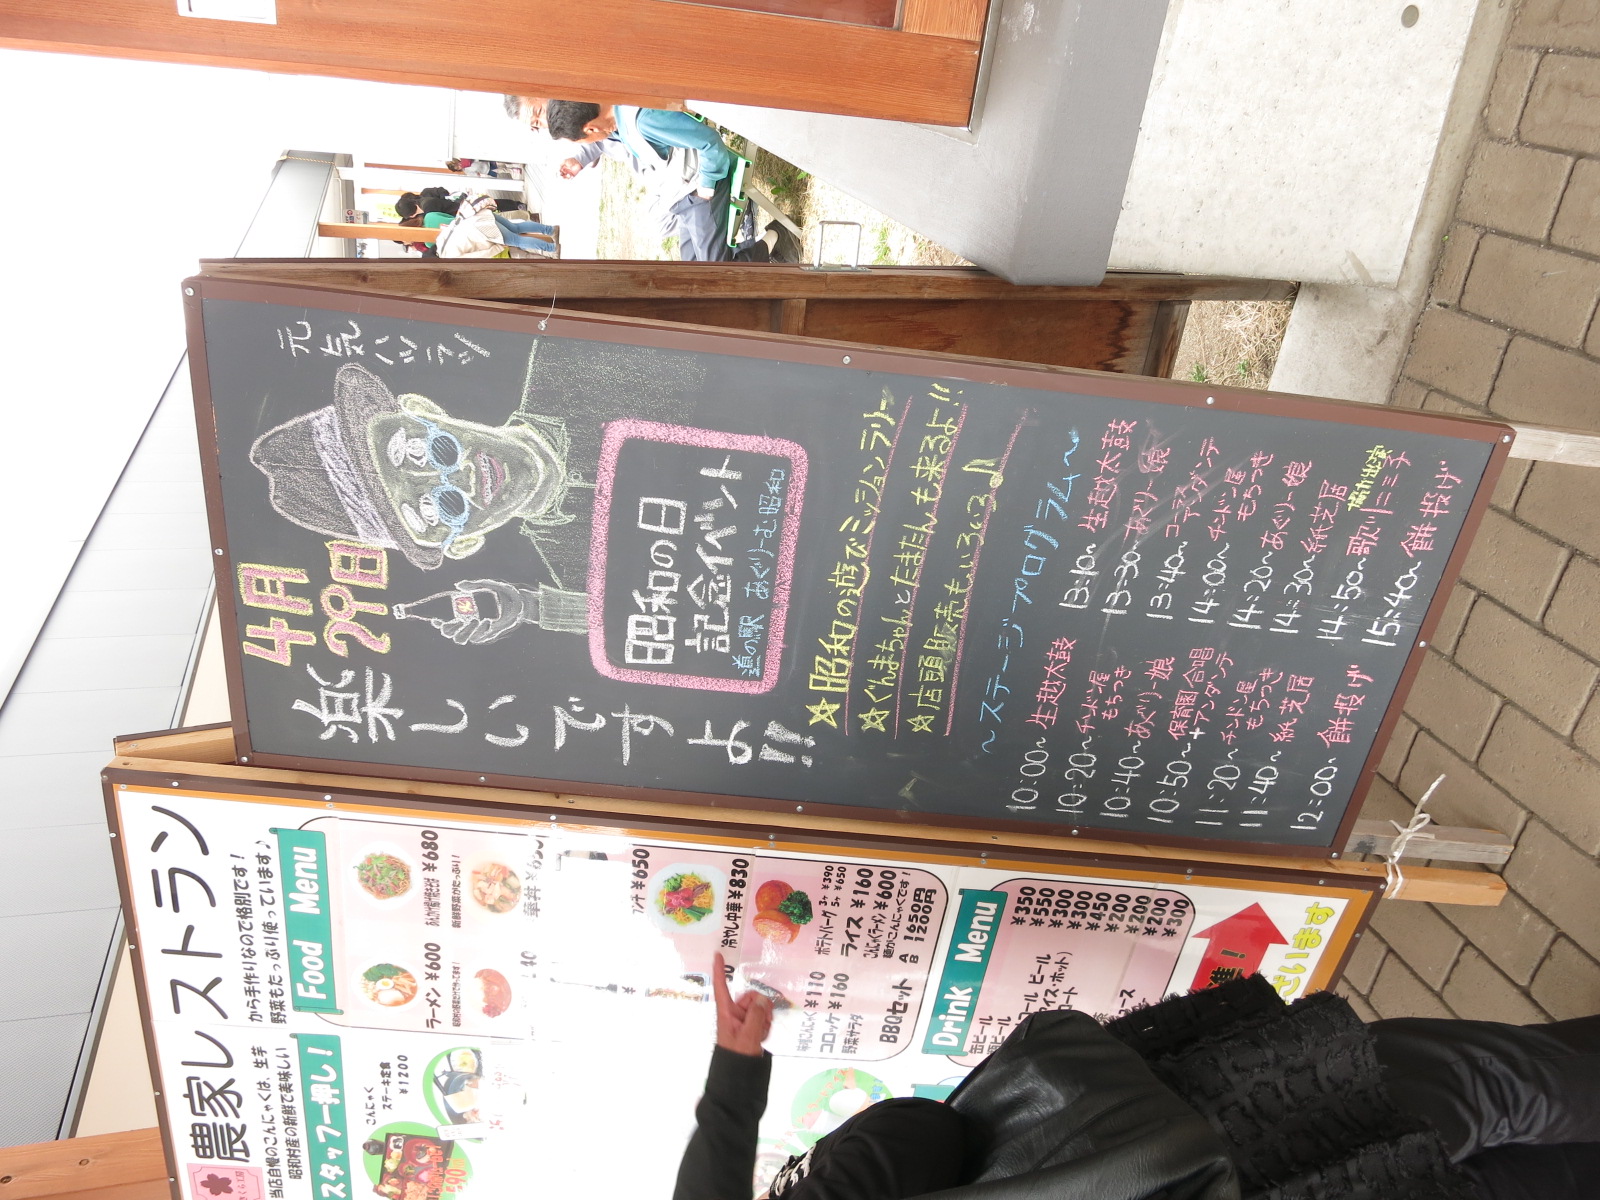 元気ハツラツ
4月
29日
楽しいですよ!!
昭和の日
記念イベント
道の駅 あぐりーむ昭和
☆昭和の遊びミッションラリー
☆ぐんまちゃんとたまたんも来るよー!!
☆店頭販売もいろいろ♪
～ステージプログラム～
10:00～ 生越太鼓
10:20～ チンドン屋
もちつき
10:40～ あぐりー娘
10:50～ 保育園合唱
+アンダンテ
11:20～ チンドン屋
もちつき
11:40～ 紙芝居
12:00～ 餅投げ
13:10～ 生越太鼓
13:30～ あぐりー娘
13:40～ コデアンダンテ
14:00～ チンドン屋
もちつき
14:20～ あぐりー娘
14:30～ 紙芝居
14:50～ 歌リミミチ
15:40～ 餅投げ
農家レストラン
当店自慢のこんにゃくは、生芋
から手作りなので格別です!
昭和村産の新鮮で美味しい
野菜もたっぷり使っています♪
スタッフ一押し!
こんにゃく
ステーキ定食
¥1200
Food Menu
ラーメン ¥600
¥680
新鮮野菜がたっぷり!
¥650
冷やし中華 ¥830
コロッケ ¥160
野菜サラダ
¥110
ポテトバーグ
¥390
¥650
ライス ¥160
こんにゃくラーメン ¥600
麺がこんにゃくです!
BBQセット A 1650円
B 1220円
Drink Menu
缶ビール ¥350
¥550
¥300
¥300
¥450
¥200
¥200
¥200
¥300
ございます